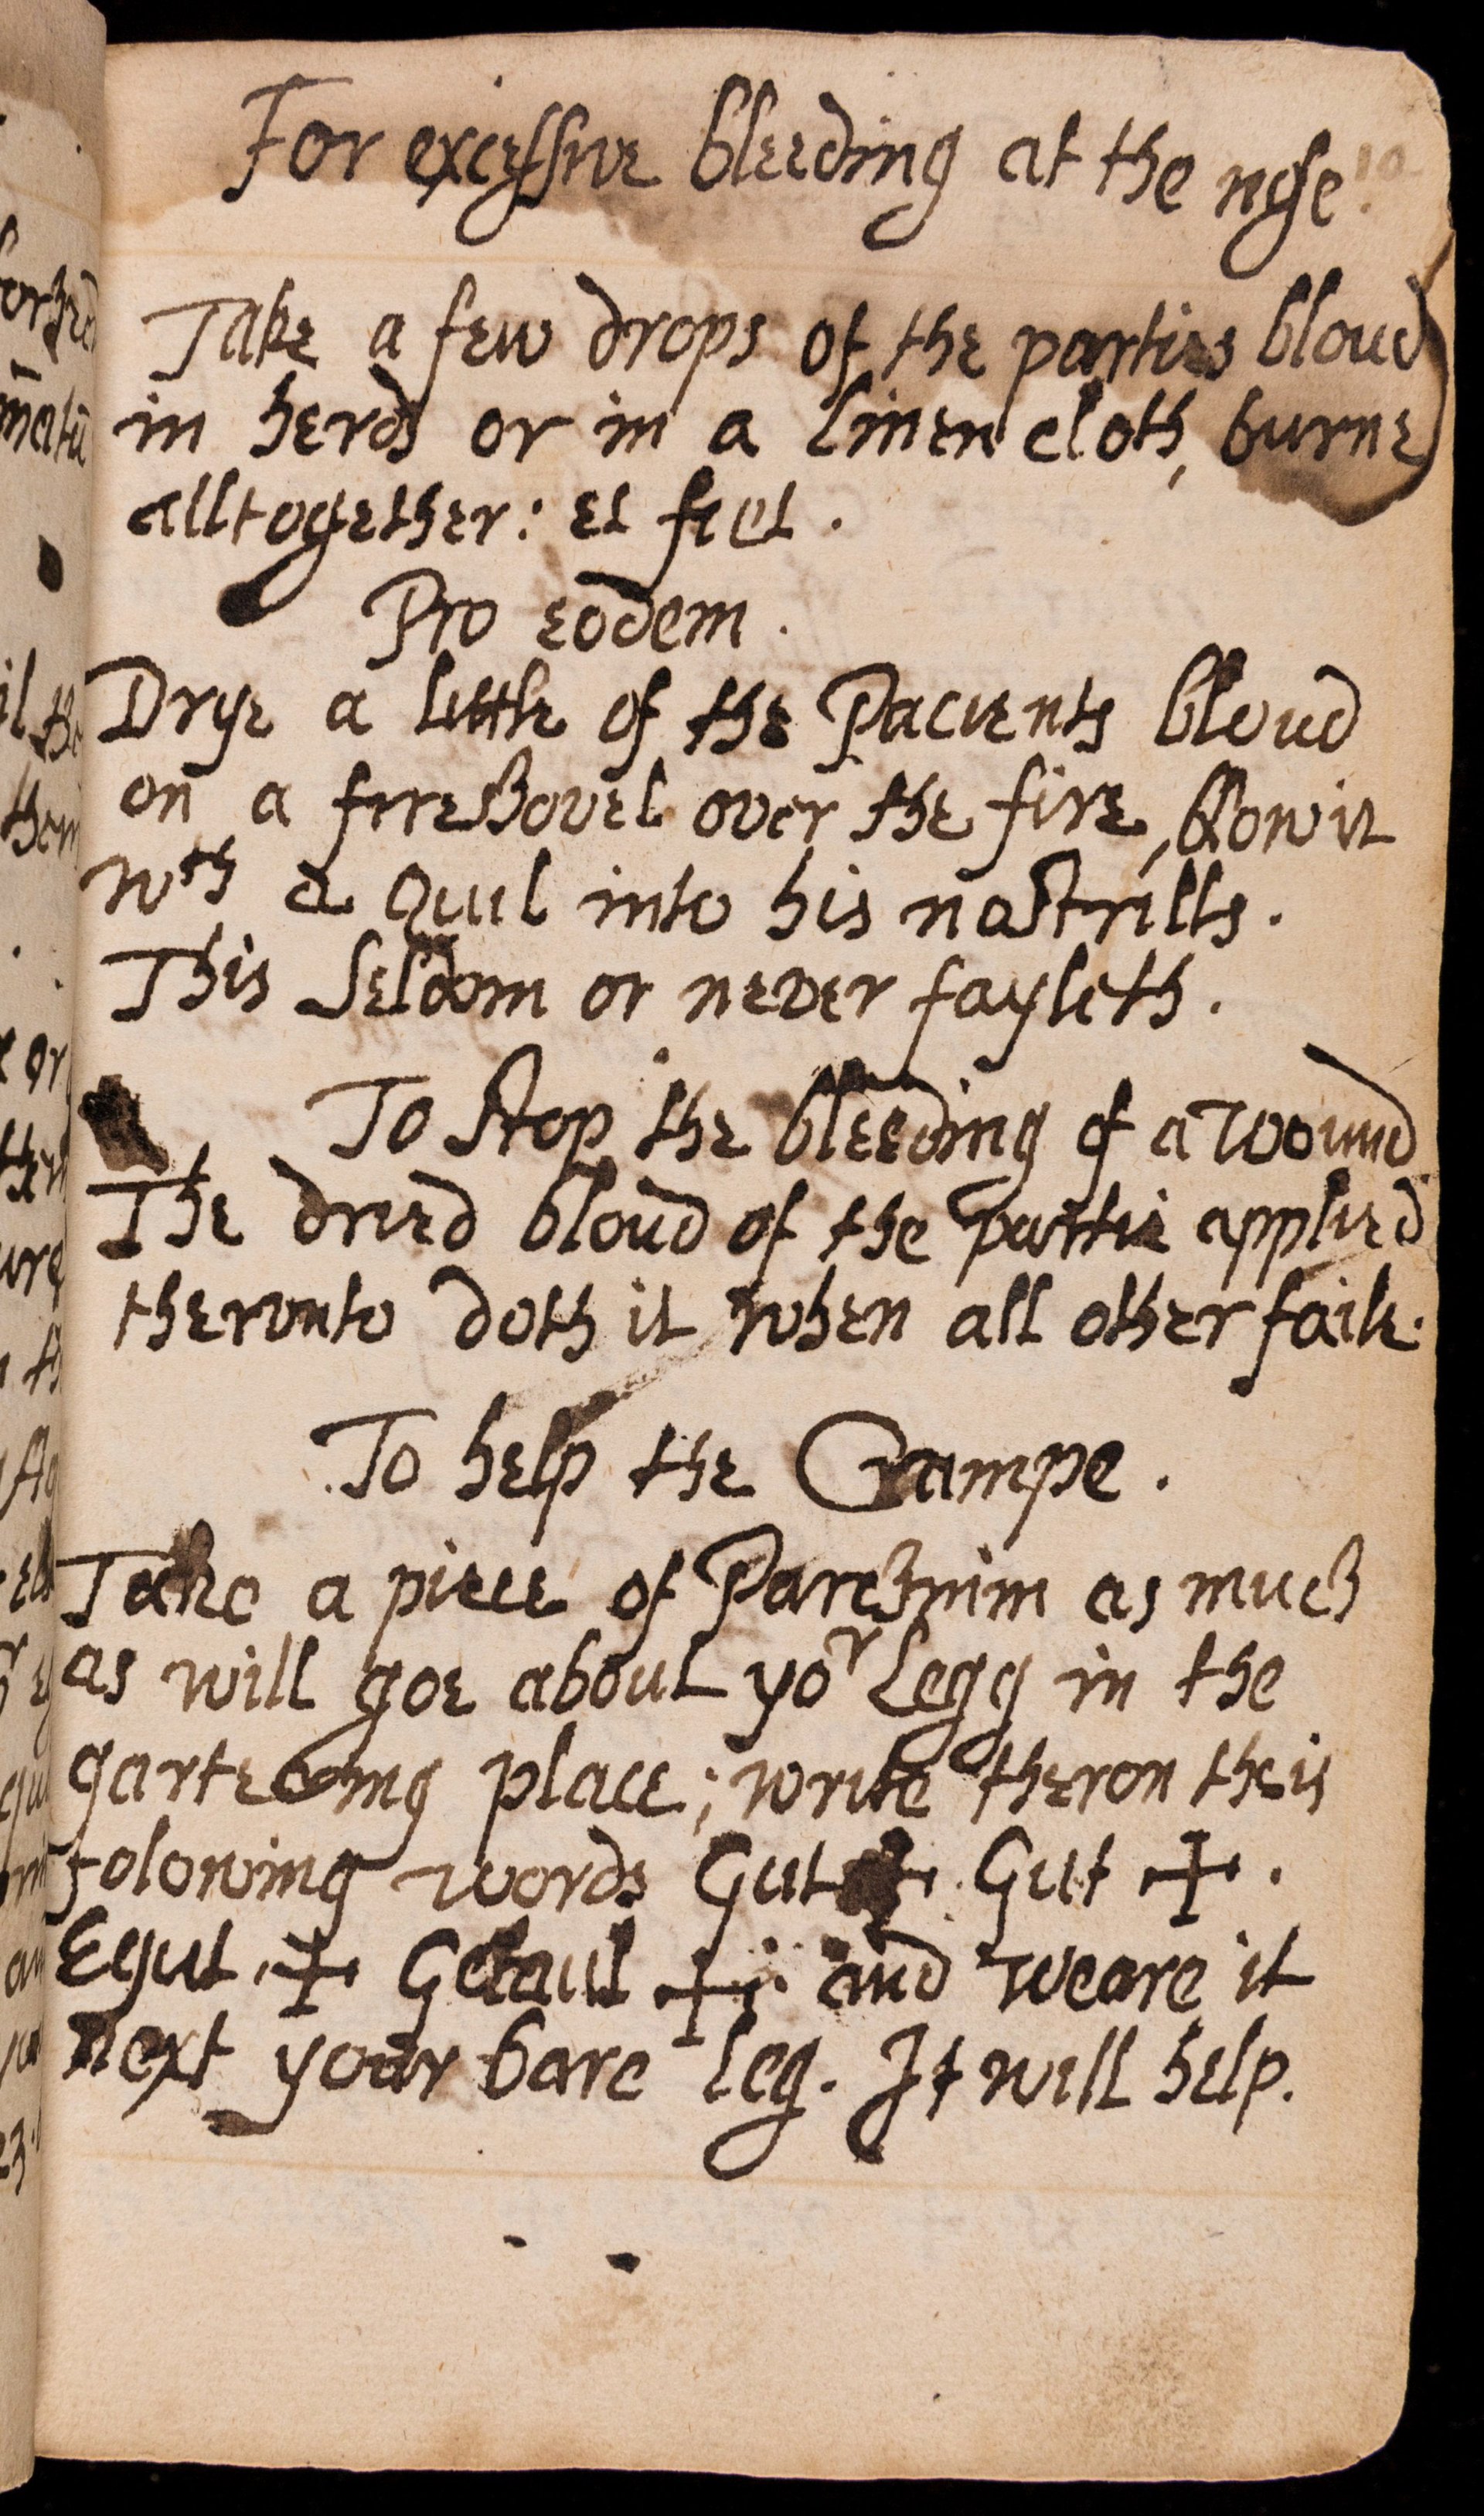 For excessive bleeding at the nose.
Take a few drops of the parties bloud
in herds or in a linen cloth, burne
alltogether: et fiet.
Pro eodem.
Drye a little of the Pacients bloud
on a fireshovel over the fire, blow it
wth a Quil into his nostrills.
This seldom or never fayleth.
To stop the bleeding of a Wound.
The dried bloud of the partie applied
thervnto doth it when all other faile.
To help the Crampe.
Take a piece of Parchmin as much
as will goe about yor Legg in the
garteering place; write theron theis
folowing words Gut + Gut +.
Egut + +: and weare it
next your bare leg. It will help.